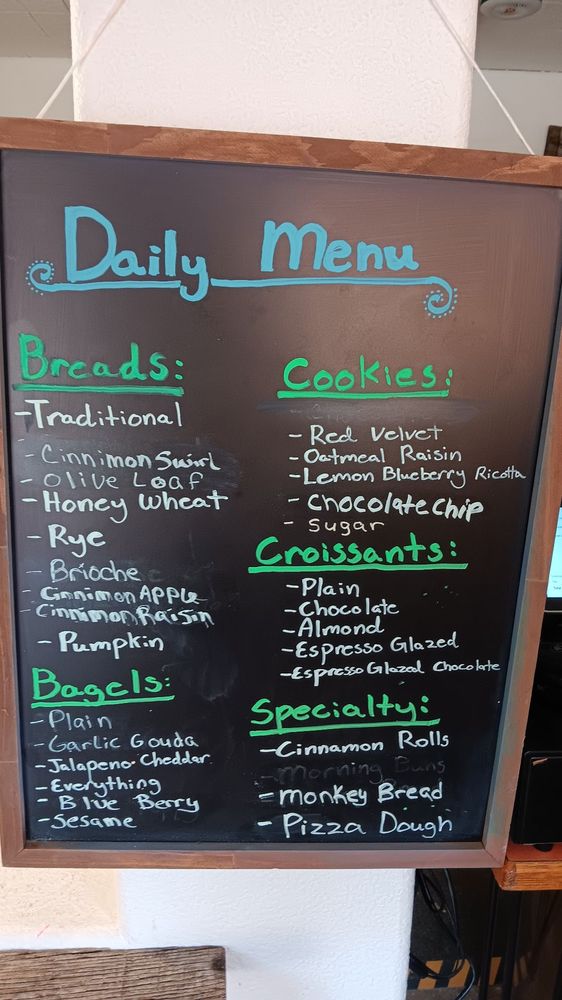 Daily Menu
Breads:
-Traditional
- Cinnimon Swirl
- Olive Loaf
- Honey Wheat
- Rye
- Brioche
- Cinnimon APPLE
- Cinnimon Raisin
- Pumpkin
Bagels:
- Plain
- Garlic Gouda
- Jalapeno-Cheddar
- Everything
- Blue Berry
- Sesame
Cookies:
- Red Velvet
- Oatmeal Raisin
- Lemon Blueberry Ricotta
- Chocolate Chip
- Sugar
Croissants:
- Plain
- Chocolate
- Almond
- Espresso Glazed
- Espresso Glazed Chocolate
Specialty:
- Cinnamon Rolls
- Morning Buns
- monkey Bread
- Pizza Dough